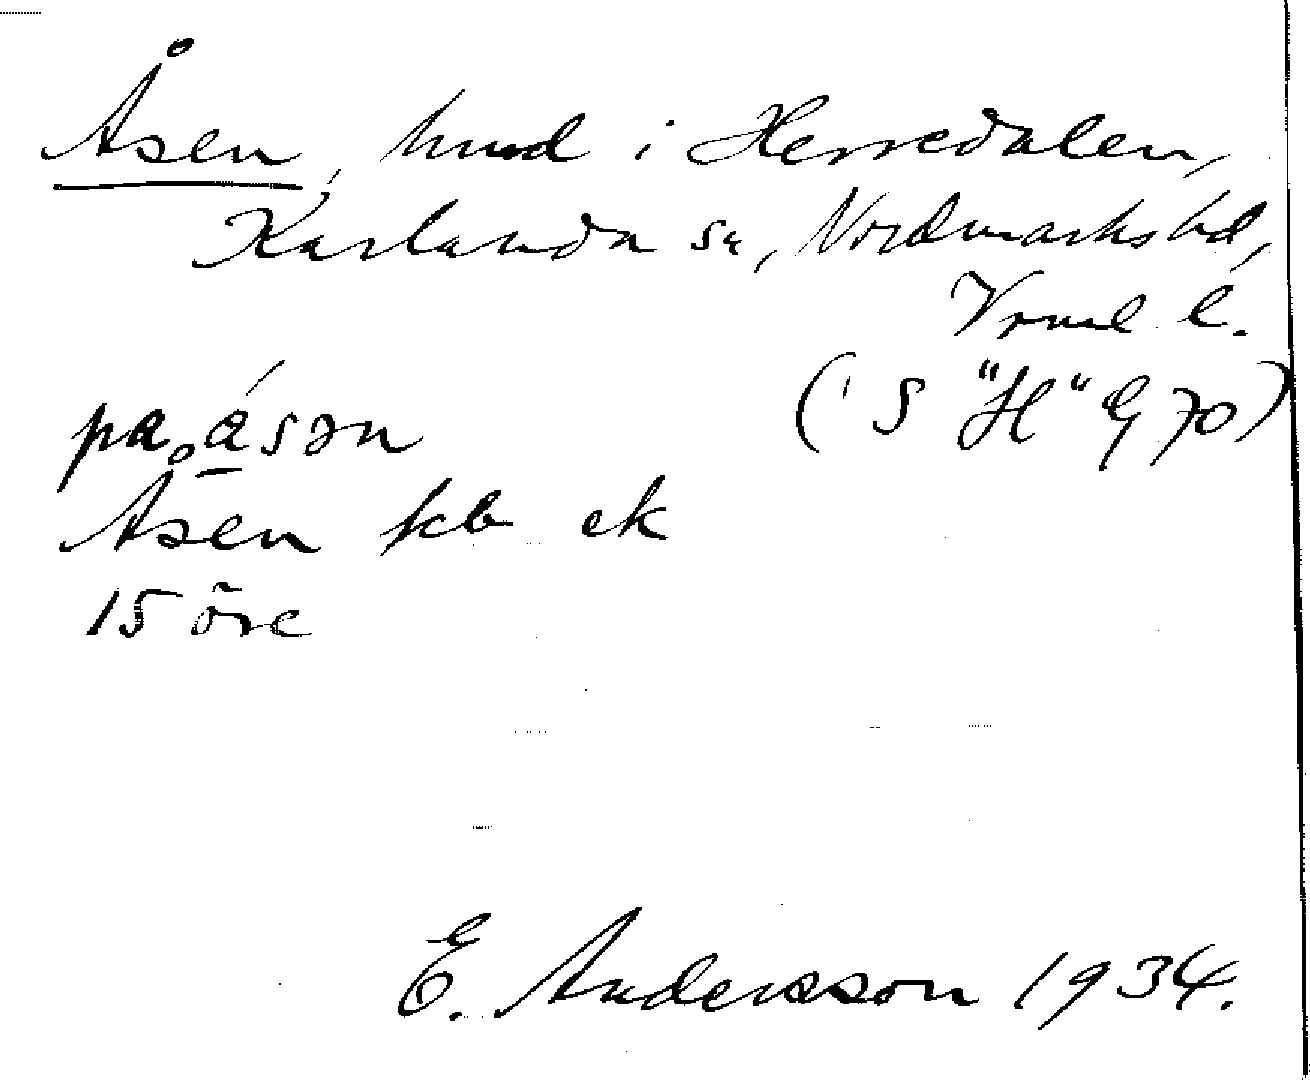 Åsen, hmd i Herredalen,
Karlanda sn, Nordmarks hd,
Vrml l.
(i S "H" E 70)
pa. åsən
Åsen kb ek
15 öre
E. Andersson 1934.